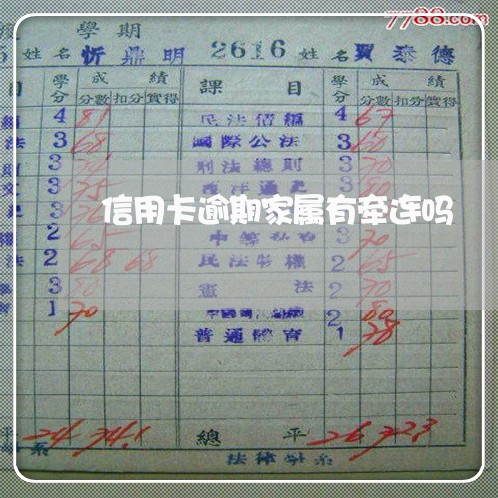 7788.com
學期
姓名 忻鼎明 2616 姓名 賈泰德
目 學分 成績 課目 學分 成績
分數 扣分 實得 分數 扣分 實得
4 81 民法債編 4 67
法 3 68 國際公法 3 60
3 刑法總則 3 70
3 75 西洋通史 3 80
信用卡逾期家属有牵连吗
2 65 3 70
法 2 68 68 民法物權 2 65
3 80 憲法 2 70
1 70 2 80
普通體育 1 78
平 24 74.1 總平 26 72.3
系 法律學系